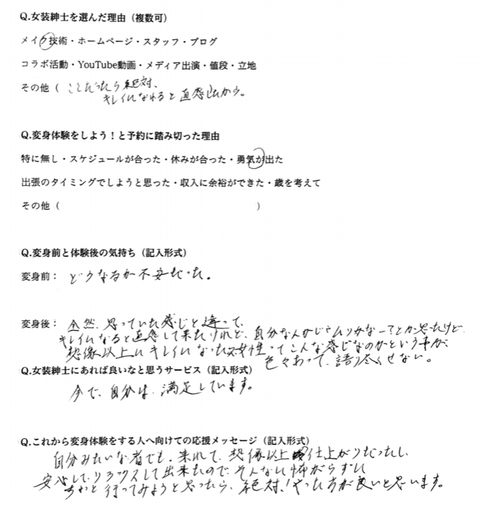 Q.女装紳士を選んだ理由（複数可）
メイク技術・ホームページ・スタッフ・ブログ
コラボ活動・YouTube動画・メディア出演・値段・立地
その他（ ここだったら絶対、
キレイになれると直感したから。
Q.変身体験をしよう！と予約に踏み切った理由
特に無し・スケジュールが合った・休みが合った・勇気が出た
出張のタイミングでしようと思った・収入に余裕ができた・歳を考えて
その他（ ）
Q.変身前と体験後の気持ち（記入形式）
変身前： どうなるか不安だった。
変身後： 全然、思っていた感じと違って、
キレイになると直感して来たけれど、自分なんかじゃムリかなーってとか思ったけど
想像以上にキレイになった 女性ってこんな感じなのかという事が、
色々あって、語り尽くせない。
Q.女装紳士にあれば良いなと思うサービス（記入形式）
今で、自分は、満足しています。
Q.これから変身体験をする人へ向けての応援メッセージ（記入形式）
自分みたいな者でも、来れて、想像以上 仕上がりだったし、
安心してリラックスして出来たので、そんなに怖がらずに
ちょっと行ってみようと思ったら、絶対！やった方が良いと思います。